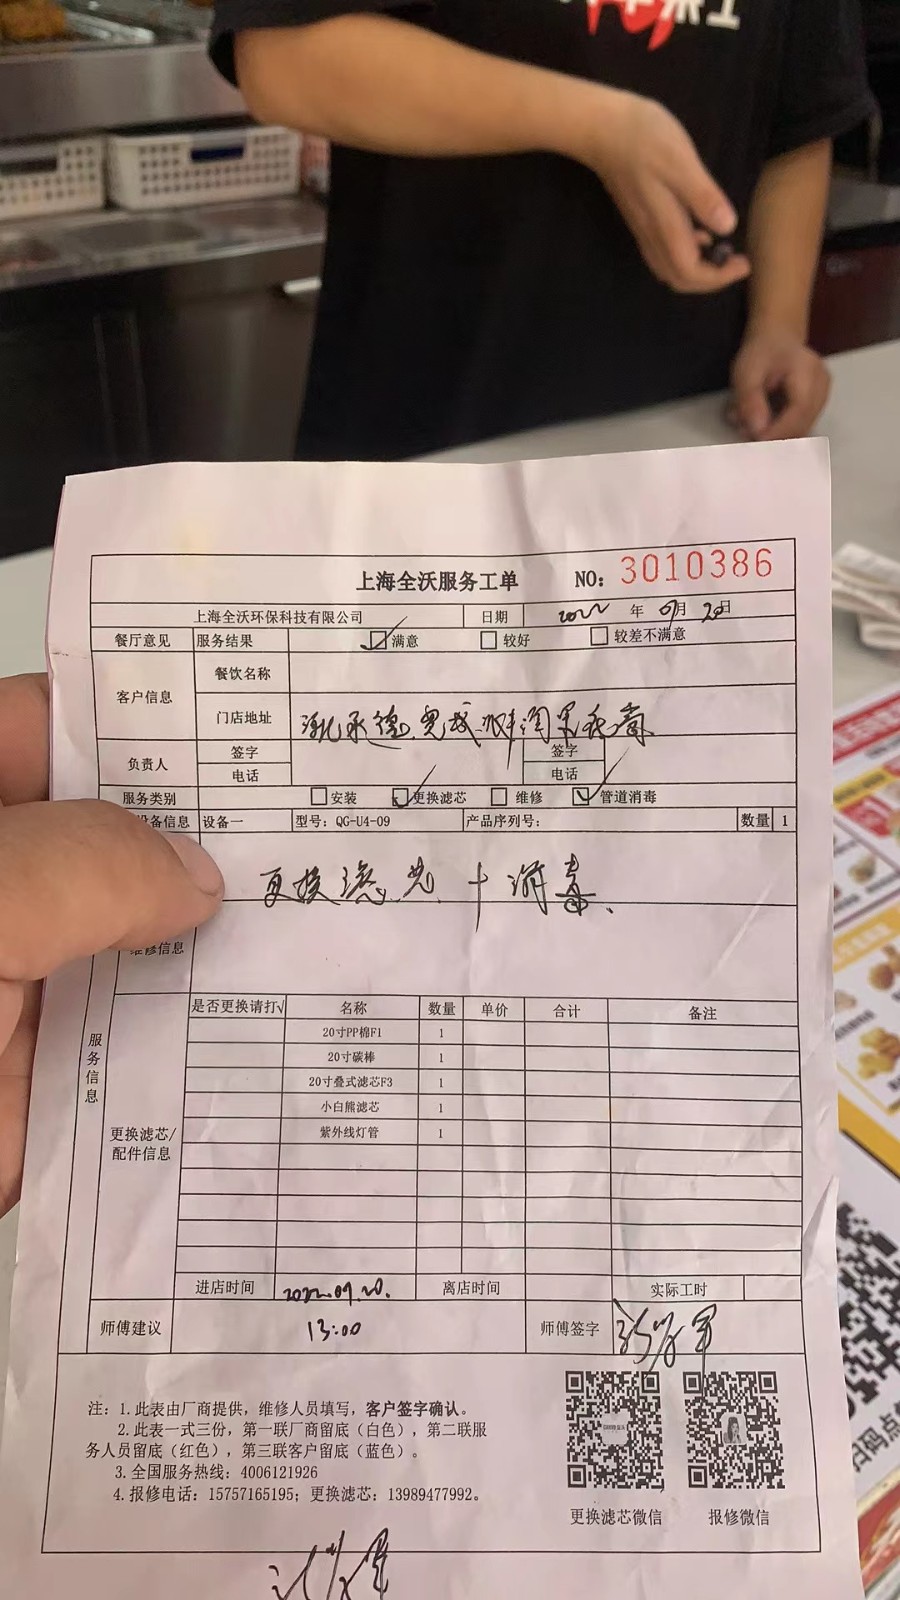 上海全沃服务工单 NO: 3010386
上海全沃环保科技有限公司 日期 2022 年 09 月 20 日
餐厅意见 服务结果 满意 较好 较差不满意
客户信息 餐饮名称
门店地址 河北承德
负责人 签字 签字
电话 电话
服务类别 安装 更换滤芯 维修 管道消毒
设备信息 设备一 型号: QG-U4-09 产品序列号: 数量 1
更换滤芯+消毒.
维修信息
服务信息
是否更换请打√ 名称 数量 单价 合计 备注
20寸PP棉F1 1
20寸碳棒 1
20寸叠式滤芯F3 1
小白熊滤芯 1
紫外线灯管 1
更换滤芯/
配件信息
进店时间 2022.09.20. 离店时间 实际工时
师傅建议 13:00 师傅签字
注: 1.此表由厂商提供，维修人员填写，客户签字确认。
2.此表一式三份，第一联厂商留底（白色），第二联服
务人员留底（红色），第三联客户留底（蓝色）。
3.全国服务热线: 4006121926
4.报修电话: 15757165195; 更换滤芯: 13989477992。
更换滤芯微信 报修微信